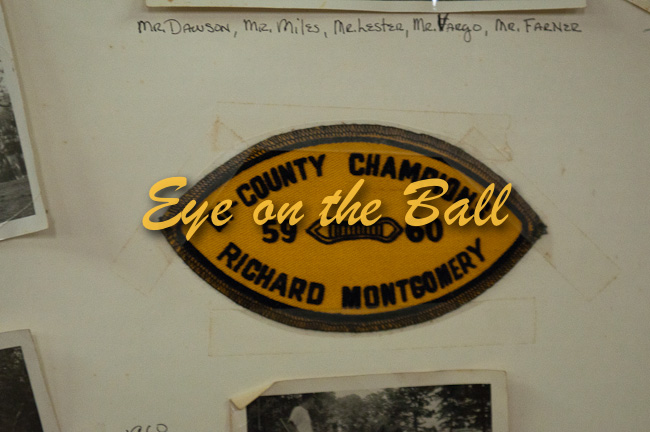 Mr. Dawson, Mr. Miles, Mr. Lester, Mr. Vargo, Mr. Farner
COUNTY CHAMPION
Eye on the Ball
59 60
RICHARD MONTGOMERY
1960